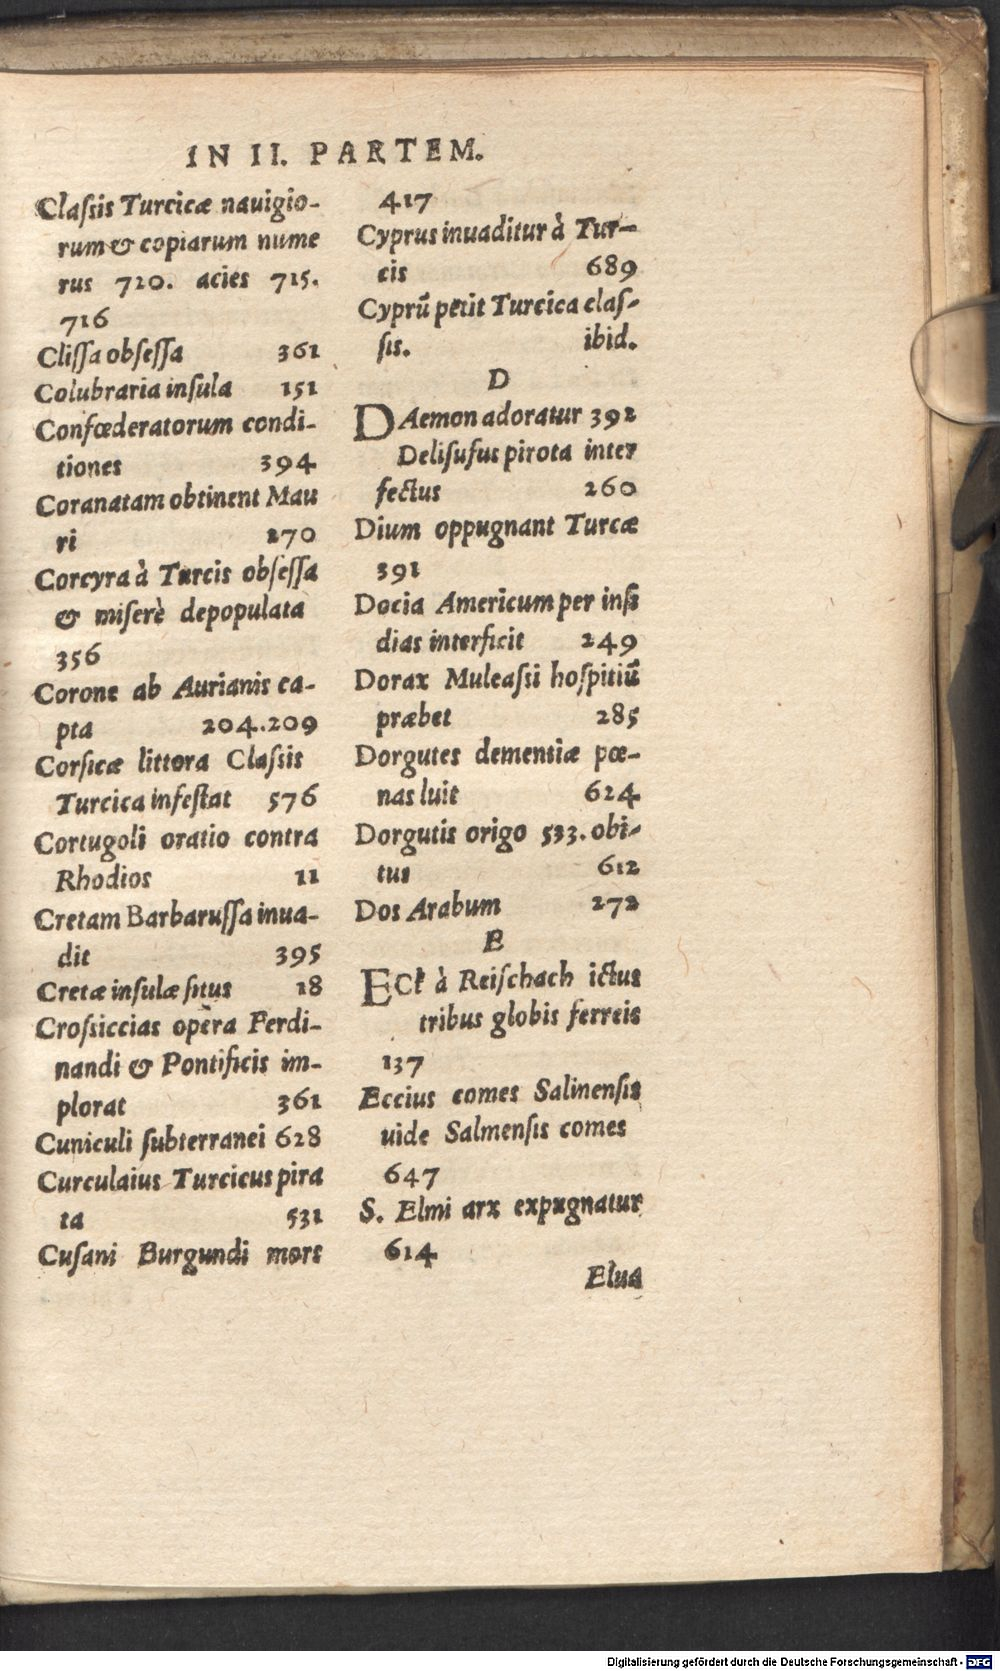 IN II. PARTEM.
Claſsis Turcicæ nauigio-
rum & copiarum nume
rus 720. acies 715.
716
Cliſſa obſeſſa 361
Colubraria inſula 151
Confœderatorum condi-
tiones 394
Coranatam obtinent Mau
ri 270
Corcyra à Turcis obſeſſa
& miſerè depopulata
356
Corone ab Aurianis ca-
pta 204.209
Corſicæ littora Claſsis
Turcica infeſtat 576
Cortugoli oratio contra
Rhodios 11
Cretam Barbaruſſa inua-
dit 395
Cretæ inſulæ ſitus 18
Croſsiccias opera Ferdi-
nandi & Pontificis im-
plorat 361
Cuniculi ſubterranei 628
Curculaius Turcicus pira
ta 531
Cuſani Burgundi mors
417
Cyprus inuaditur à Tur-
cis 689
Cyprũ petit Turcica claſ-
ſis. ibid.
D
DAemon adoratur 392
Deliſufus pirota inter
fectus 260
Dium oppugnant Turcæ
391
Docia Americum per inſi
dias interficit 249
Dorax Muleaſsi hoſpitiũ
præbet 285
Dorgutes dementiæ pœ-
nas luit 624
Dorgutis origo 533. obi-
tus 612
Dos Arabum 272
E
ECk à Reiſchach ictus
tribus globis ferreis
137
Eccius comes Salinenſis
uide Salmenſis comes
647
S. Elmi arx expugnatur
614
Elua
Digitalisierung gefördert durch die Deutsche Forschungsgemeinschaft - DFG